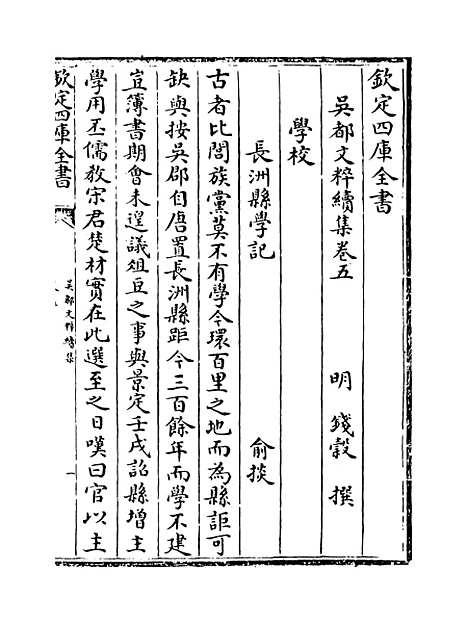 欽定四庫全書
吳都文粹續集卷五
明 錢穀 撰
學校
長洲縣學記
俞掞
古者比閭族黨莫不有學今環百里之地而為縣詎可
缺與按吳郡自唐置長洲縣距今三百餘年而學不建
豈簿書期會未遑議俎豆之事與景定壬戌詔縣增主
學用丕儒教宋君楚材實在此選至之日嘆曰官以主
欽定四庫全書
吳都文粹續集
一